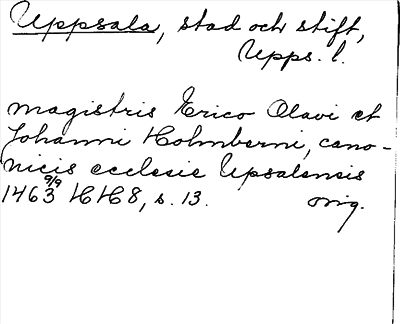 Uppsala, stad och stift,
Upps. l.
magistris Erico Olavi et
Johanni Holmberni, cano-
nicis ecclesie Upsalensis
1463 9/9 HH8, s. 13. orig.